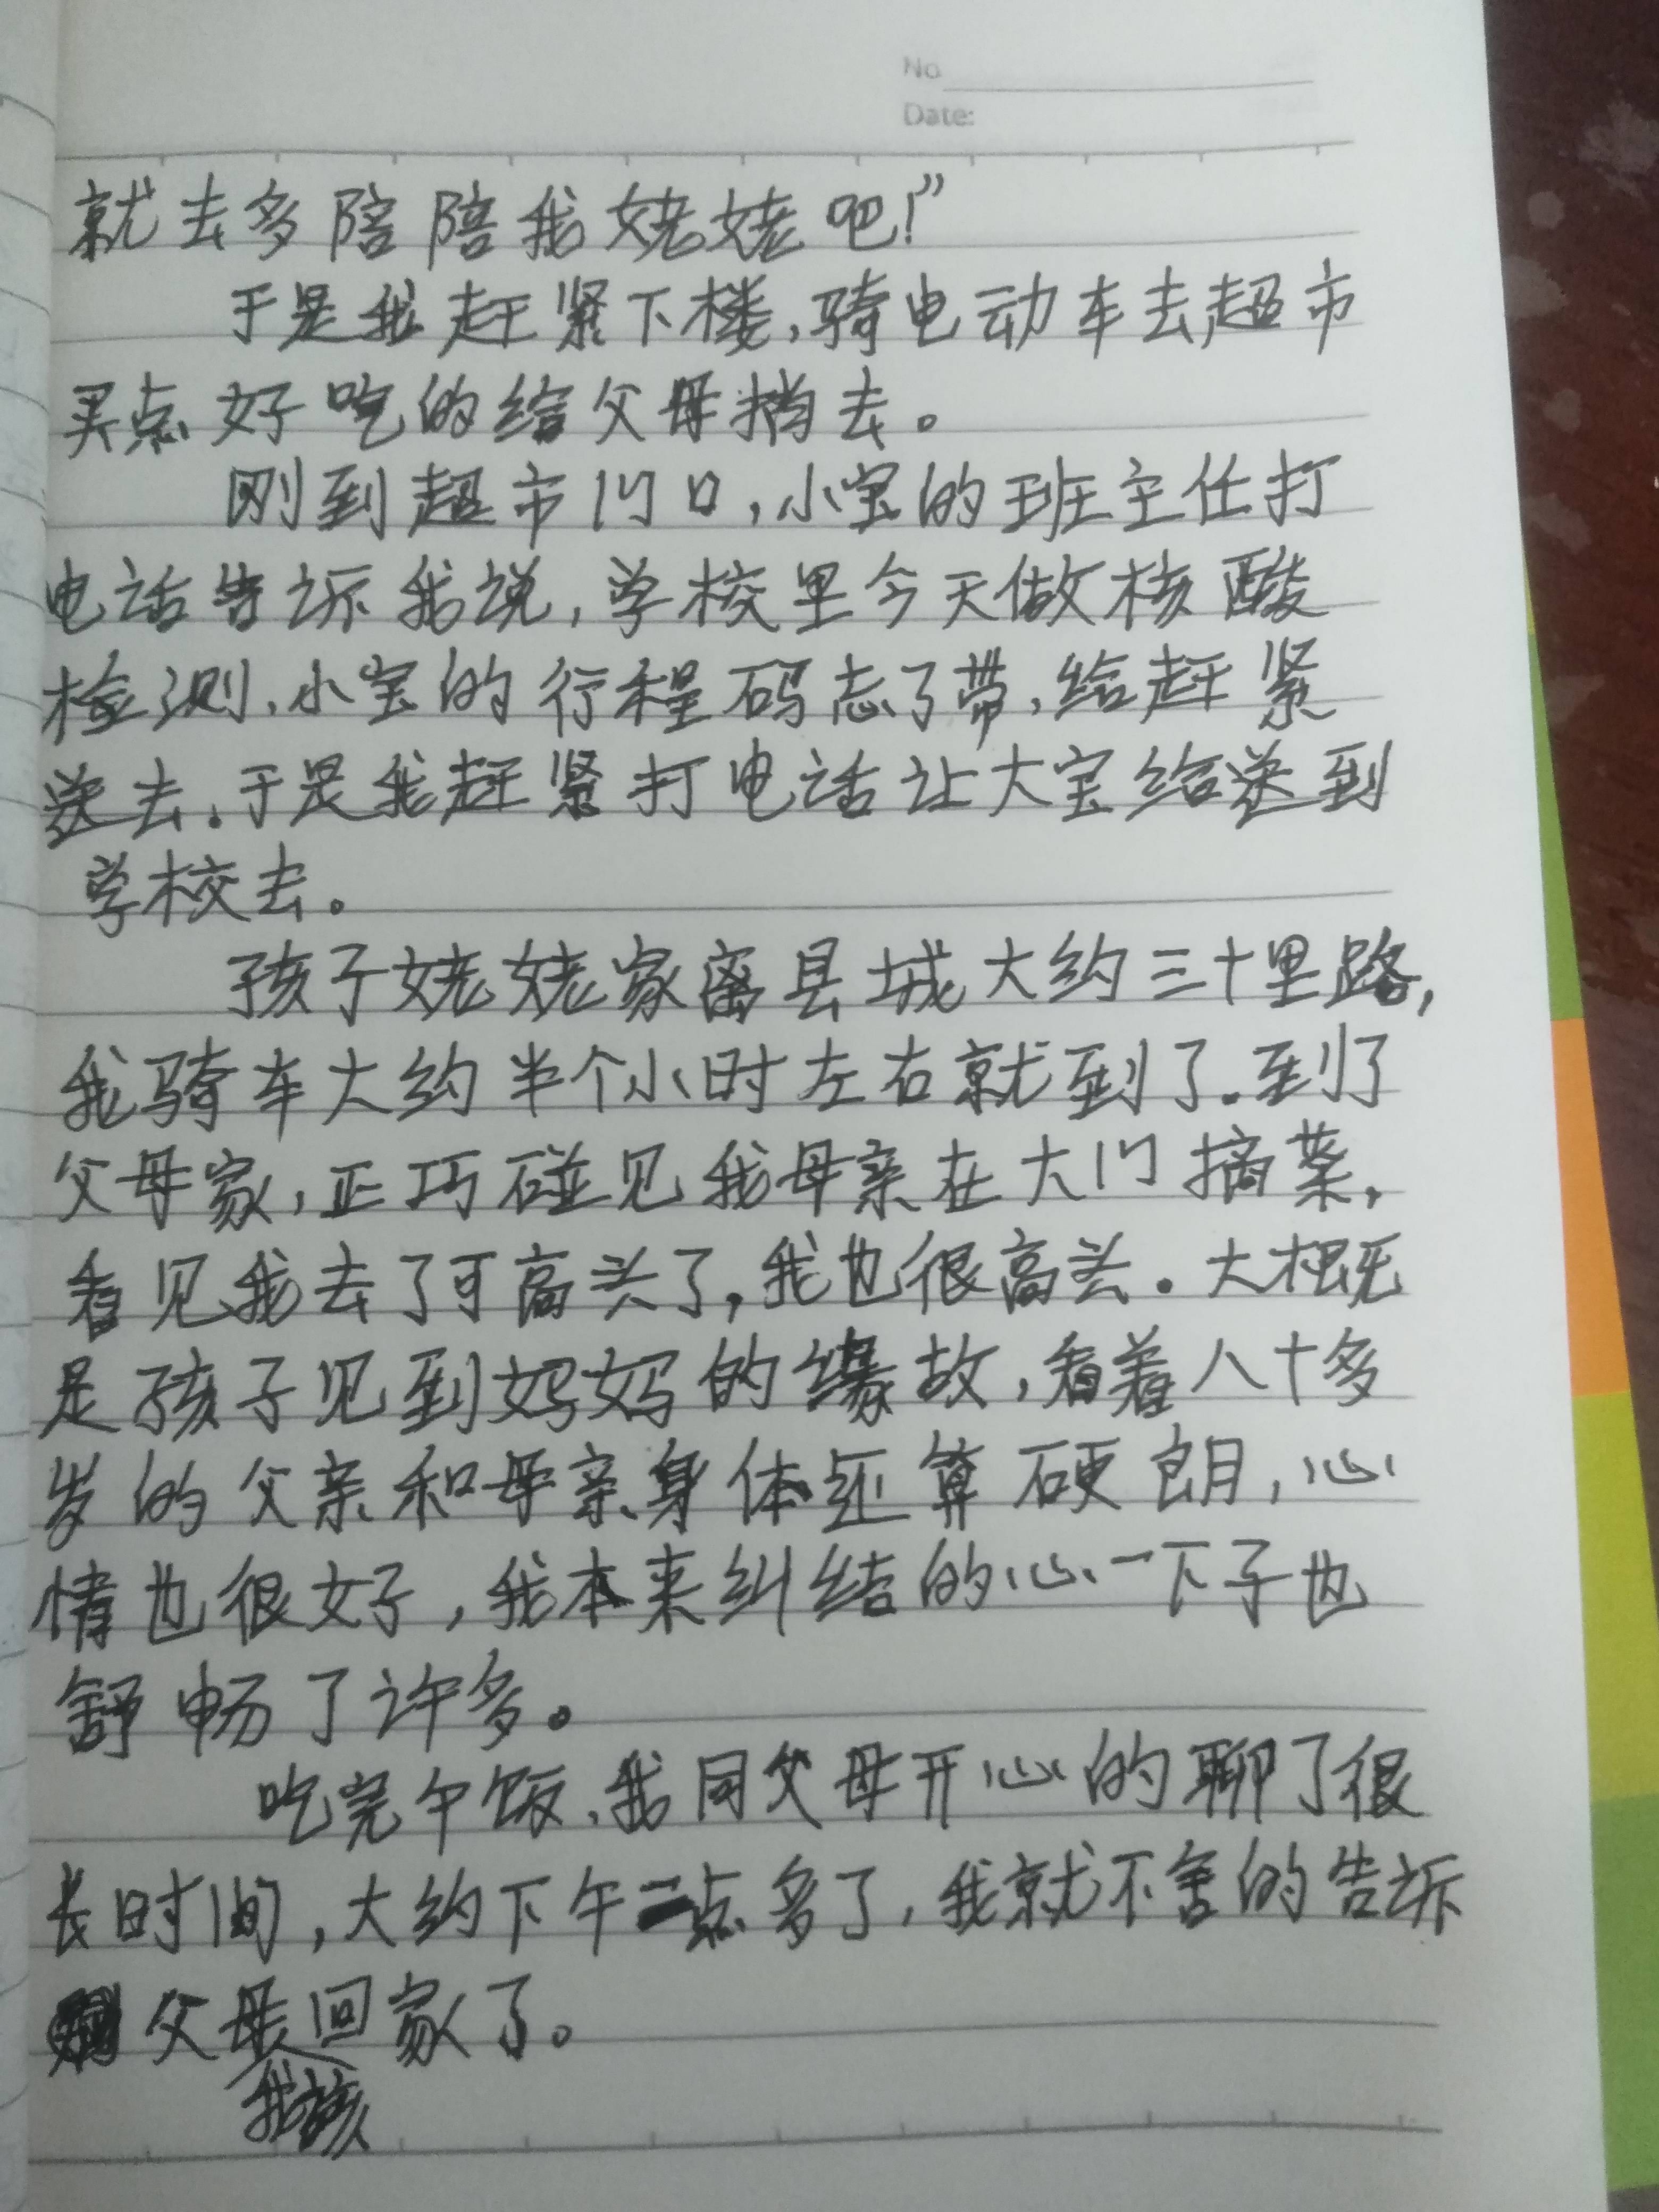 No
Date:
就去多陪陪我姥姥吧!”
于是我赶紧下楼,骑电动车去超市
买点好吃的给父母捎去。
刚到超市门口,小宝的班主任打
电话告诉我说,学校里今天做核酸
检测,小宝的行程码忘了带,给赶紧
送去.于是我赶紧打电话让大宝给送到
学校去。
孩子姥姥家离县城大约三十里路,
我骑车大约半个小时左右就到了.到了
父母家,正巧碰见我母亲在大门摘菜,
看见我去了可高兴了,我也很高兴.大概
是孩子见到妈妈的缘故,看着八十多
岁的父亲和母亲身体还算硬朗,心
情也很好,我本来纠结的心一下子也
舒畅了许多。
吃完午饭,我同父母开心的聊了很
长时间,大约下午二点多了,我就不舍的告诉
父母回家了。
我该